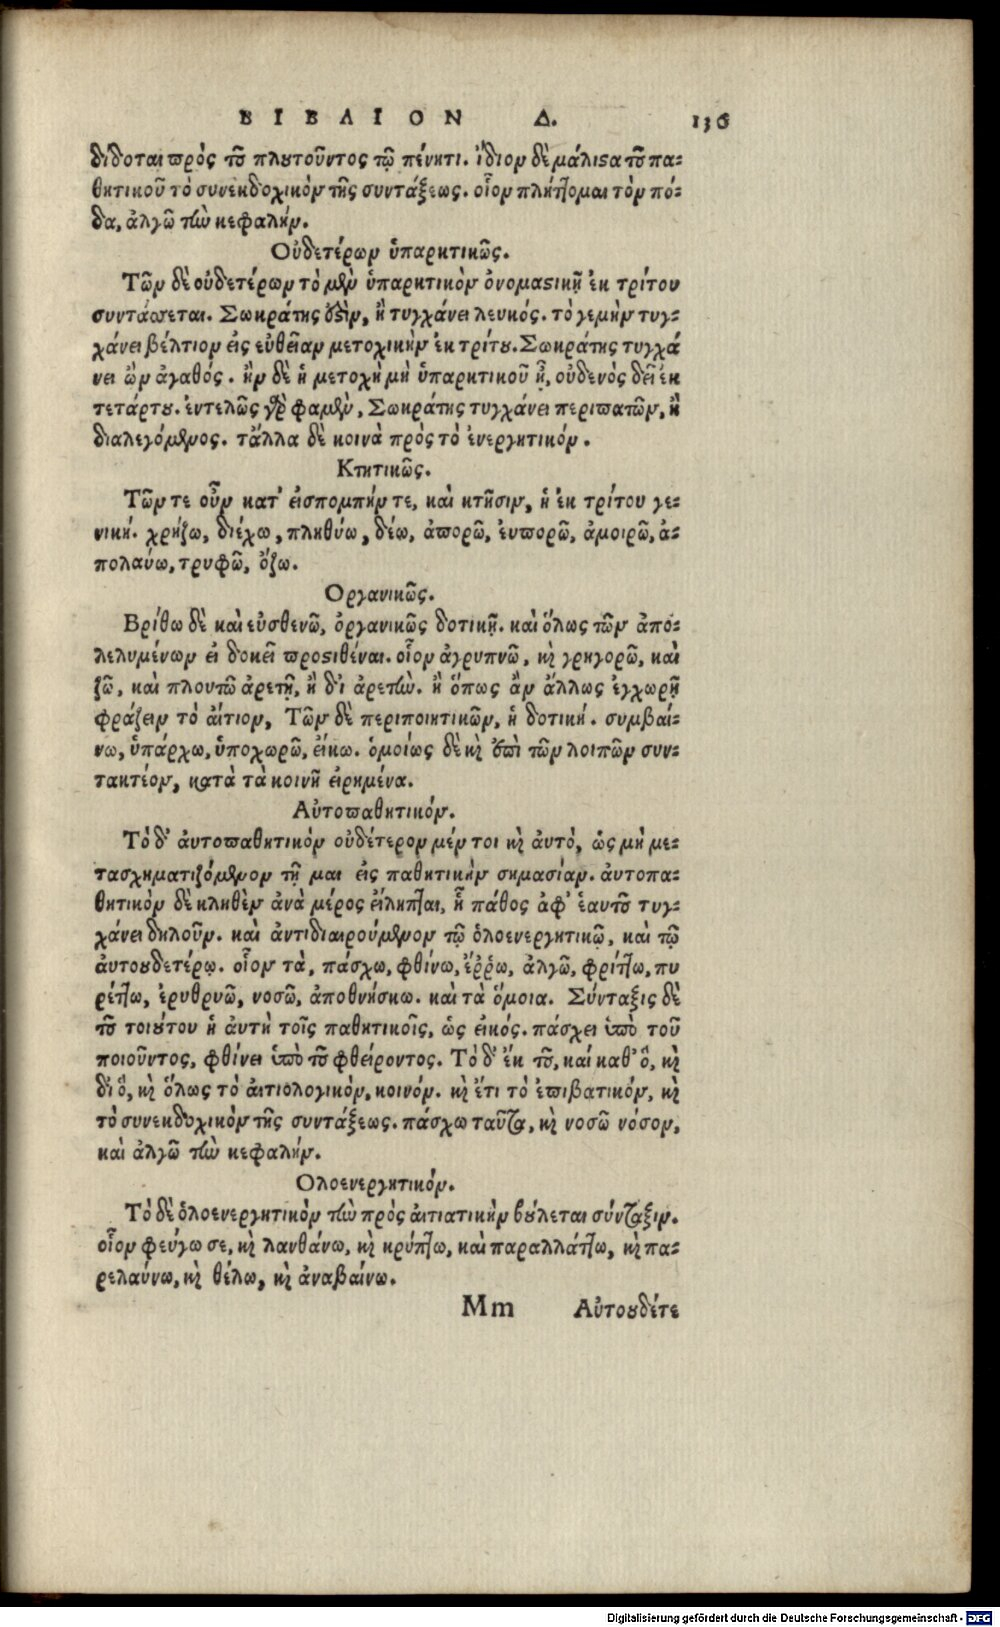 ΒΙΒΛΙΟΝ Δ. 136
δίδοται πρὸς τοῦ πλουτοῦντος τῷ πένητι. ἴδιον δὲ μάλιστα τοῦ πα-
θητικοῦ τὸ συνεκδοχικὸν τῆς συντάξεως. οἷον πλήττομαι τὸν πό-
δα, ἀλγῶ τὴν κεφαλήν.
Οὐδετέρων ὑπαρκτικῶς.
Τῶν δὲ οὐδετέρων τὸ μὲν ὑπαρκτικὸν ὀνομαστικῇ ἐκ τρίτου
συντάσσεται. Σωκράτης ἐστὶν, ἢ τυγχάνει λευκός. τὸ γεμὴν τυγ-
χάνει βέλτιον εἰς εὐθεῖαν μετοχικὴν ἐκ τρίτου. Σωκράτης τυγχά
νει ὢν ἀγαθός. ἢν δὲ ἡ μετοχὴ μὴ ὑπαρκτικοῦ ᾖ, οὐδενὸς δεῖ ἐκ
τετάρτου. ἐντελῶς γὰρ φαμὲν, Σωκράτης τυγχάνει περιπατῶν, ἢ
διαλεγόμενος. τἄλλα δὲ κοινὰ πρὸς τὸ ἐνεργητικόν.
Κτητικῶς.
Τῶν τε οὖν κατ' εἰσπομπήν τε, καὶ κτῆσιν, ἡ ἐκ τρίτου γε-
νική. χρῄζω, διέχω, πληθύω, δέω, ἀπορῶ, ἐυπορῶ, ἀμοιρῶ, ἀ-
πολαύω, τρυφῶ, ὄζω.
Οργανικῶς.
Βρίθω δὲ καὶ εὐσθενῶ, ὀργανικῶς δοτικῇ. καὶ ὅλως τῶν ἀπό-
λελυμένων εἰ δοκεῖ προστιθέναι. οἷον ἀγρυπνῶ, καὶ γρηγορῶ, καὶ
ζῶ, καὶ πλουτῶ ἀρετῇ, ἢ δι ἀρετὴν. ἢ ὅπως ἂν ἄλλως ἐγχωρῇ
φράζειν τὸ ἄιτιον, Τῶν δὲ περιποιητικῶν, ἡ δοτική. συμβαί-
νω, ὑπάρχω, ὑποχωρῶ, ἐίκω. ὁμοίως δὲ καὶ ἐπὶ τῶν λοιπῶν συν-
τακτέον, κατὰ τὰ κοινῇ ἐιρημένα.
Αὐτοπαθητικόν.
Τὸ δ' ἀυτοπαθητικὸν οὐδέτερον μέν τοι καὶ ἀυτὸ, ὡς μὴ με-
τασχηματιζόμενον τῇ μαι εἰς παθητικὴν σημασίαν. ἀυτοπα-
θητικὸν δὲ κληθὲν ἀνὰ μέρος ἔιληπται, ᾗ πάθος ἀφ' ἑαυτοῦ τυγ-
χάνει δηλοῦν. καὶ ἀντιδιαιρούμενον τῷ ὁλοενεργητικῷ, καὶ τῷ
ἀυτουδετέρῳ. οἷον τὰ, πάσχω, φθίνω, ἔῤῥω, ἀλγῶ, φρίττω, πυ
ρέττω, ἐρυθρυῶ, νοσῶ, ἀποθνήσκω. καὶ τὰ ὅμοια. Σύνταξις δὲ
τοῦ τοιούτου ἡ ἀυτὴ τοῖς παθητικοῖς, ὡς εἰκός. πάσχει ὑπὸ τοῦ
ποιοῦντος, φθίνει ὑπὸ τοῦ φθείροντος. Τὸ δ' ἐκ τοῦ, καὶ καθ' ὅ, καὶ
δι ὅ, καὶ ὅλως τὸ ἀιτιολογικὸν, κοινόν. καὶ ἔτι τὸ ἐπιβατικόν, καὶ
τὸ συνεκδοχικὸν τῆς συντάξεως. πάσχω ταῦτα, καὶ νοσῶ νόσον,
καὶ ἀλγῶ τὴν κεφαλήν.
Ολοενεργητικόν.
Τὸ δὲ ὁλοενεργητικὸν τὴν πρὸς ἀιτιατικὴν βούλεται σύνταξιν.
οἷον φεύγω σε, καὶ λανθάνω, καὶ κρύπτω, καὶ παραλλάττω, καὶ πα-
ρελαύνω, καὶ θέλω, καὶ ἀναβαίνω.
Mm Αὐτουδέτε
Digitalisierung gefördert durch die Deutsche Forschungsgemeinschaft - DFG